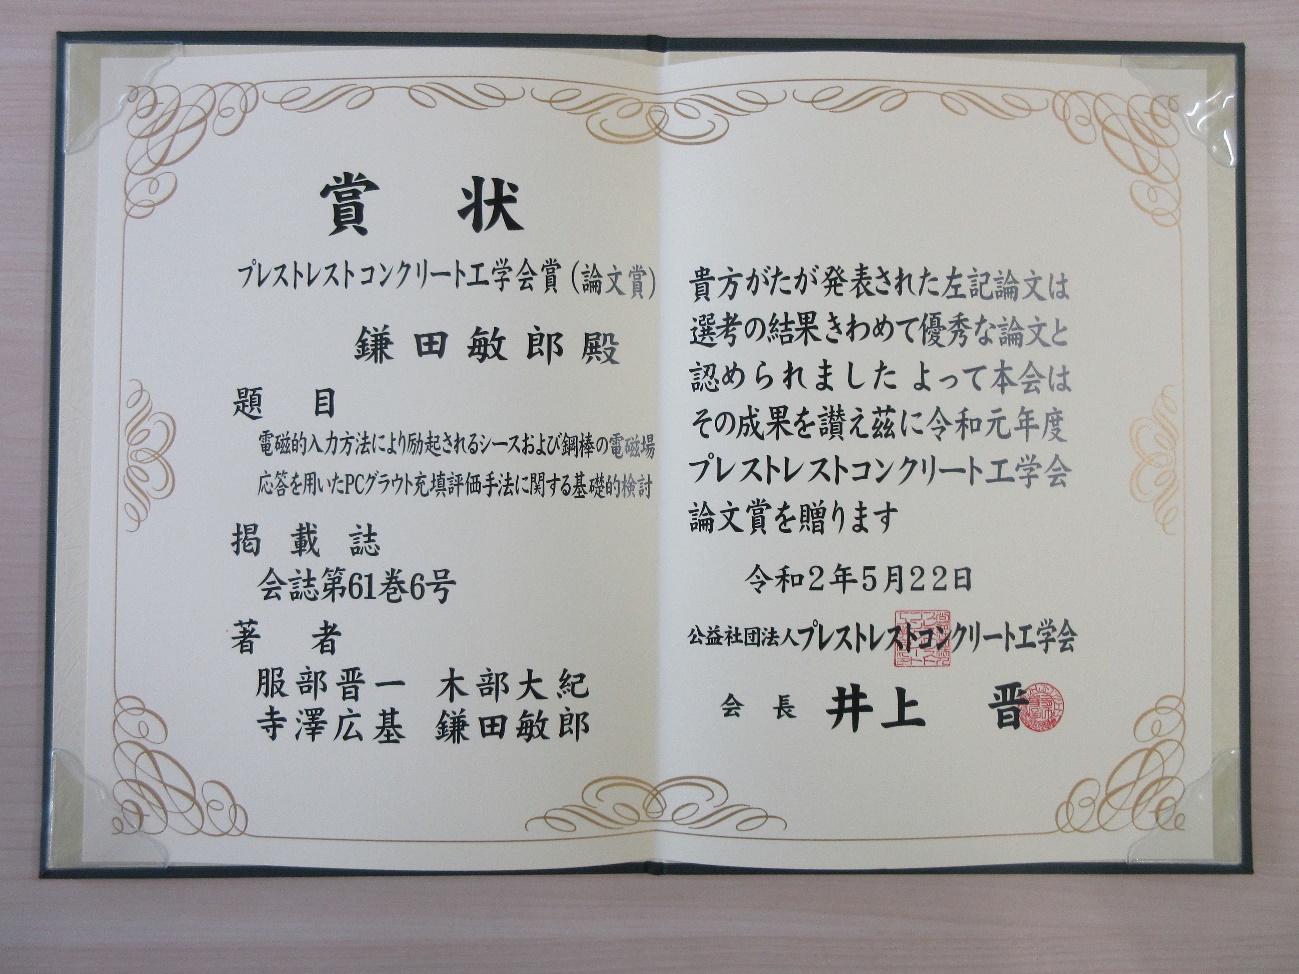 賞状
プレストレストコンクリート工学会賞(論文賞)
鎌田敏郎殿
題目
電磁的入力方法により励起されるシースおよび鋼棒の電磁場
応答を用いたPCグラウト充填評価手法に関する基礎的検討
掲載誌
会誌第61巻6号
著者
服部晋一 木部大紀
寺澤広基 鎌田敏郎
貴方がたが発表された左記論文は
選考の結果きわめて優秀な論文と
認められました よって本会は
その成果を讃え茲に令和元年度
プレストレストコンクリート工学会
論文賞を贈ります
令和2年5月22日
公益社団法人プレストレストコンクリート工学会
会長 井上 晋